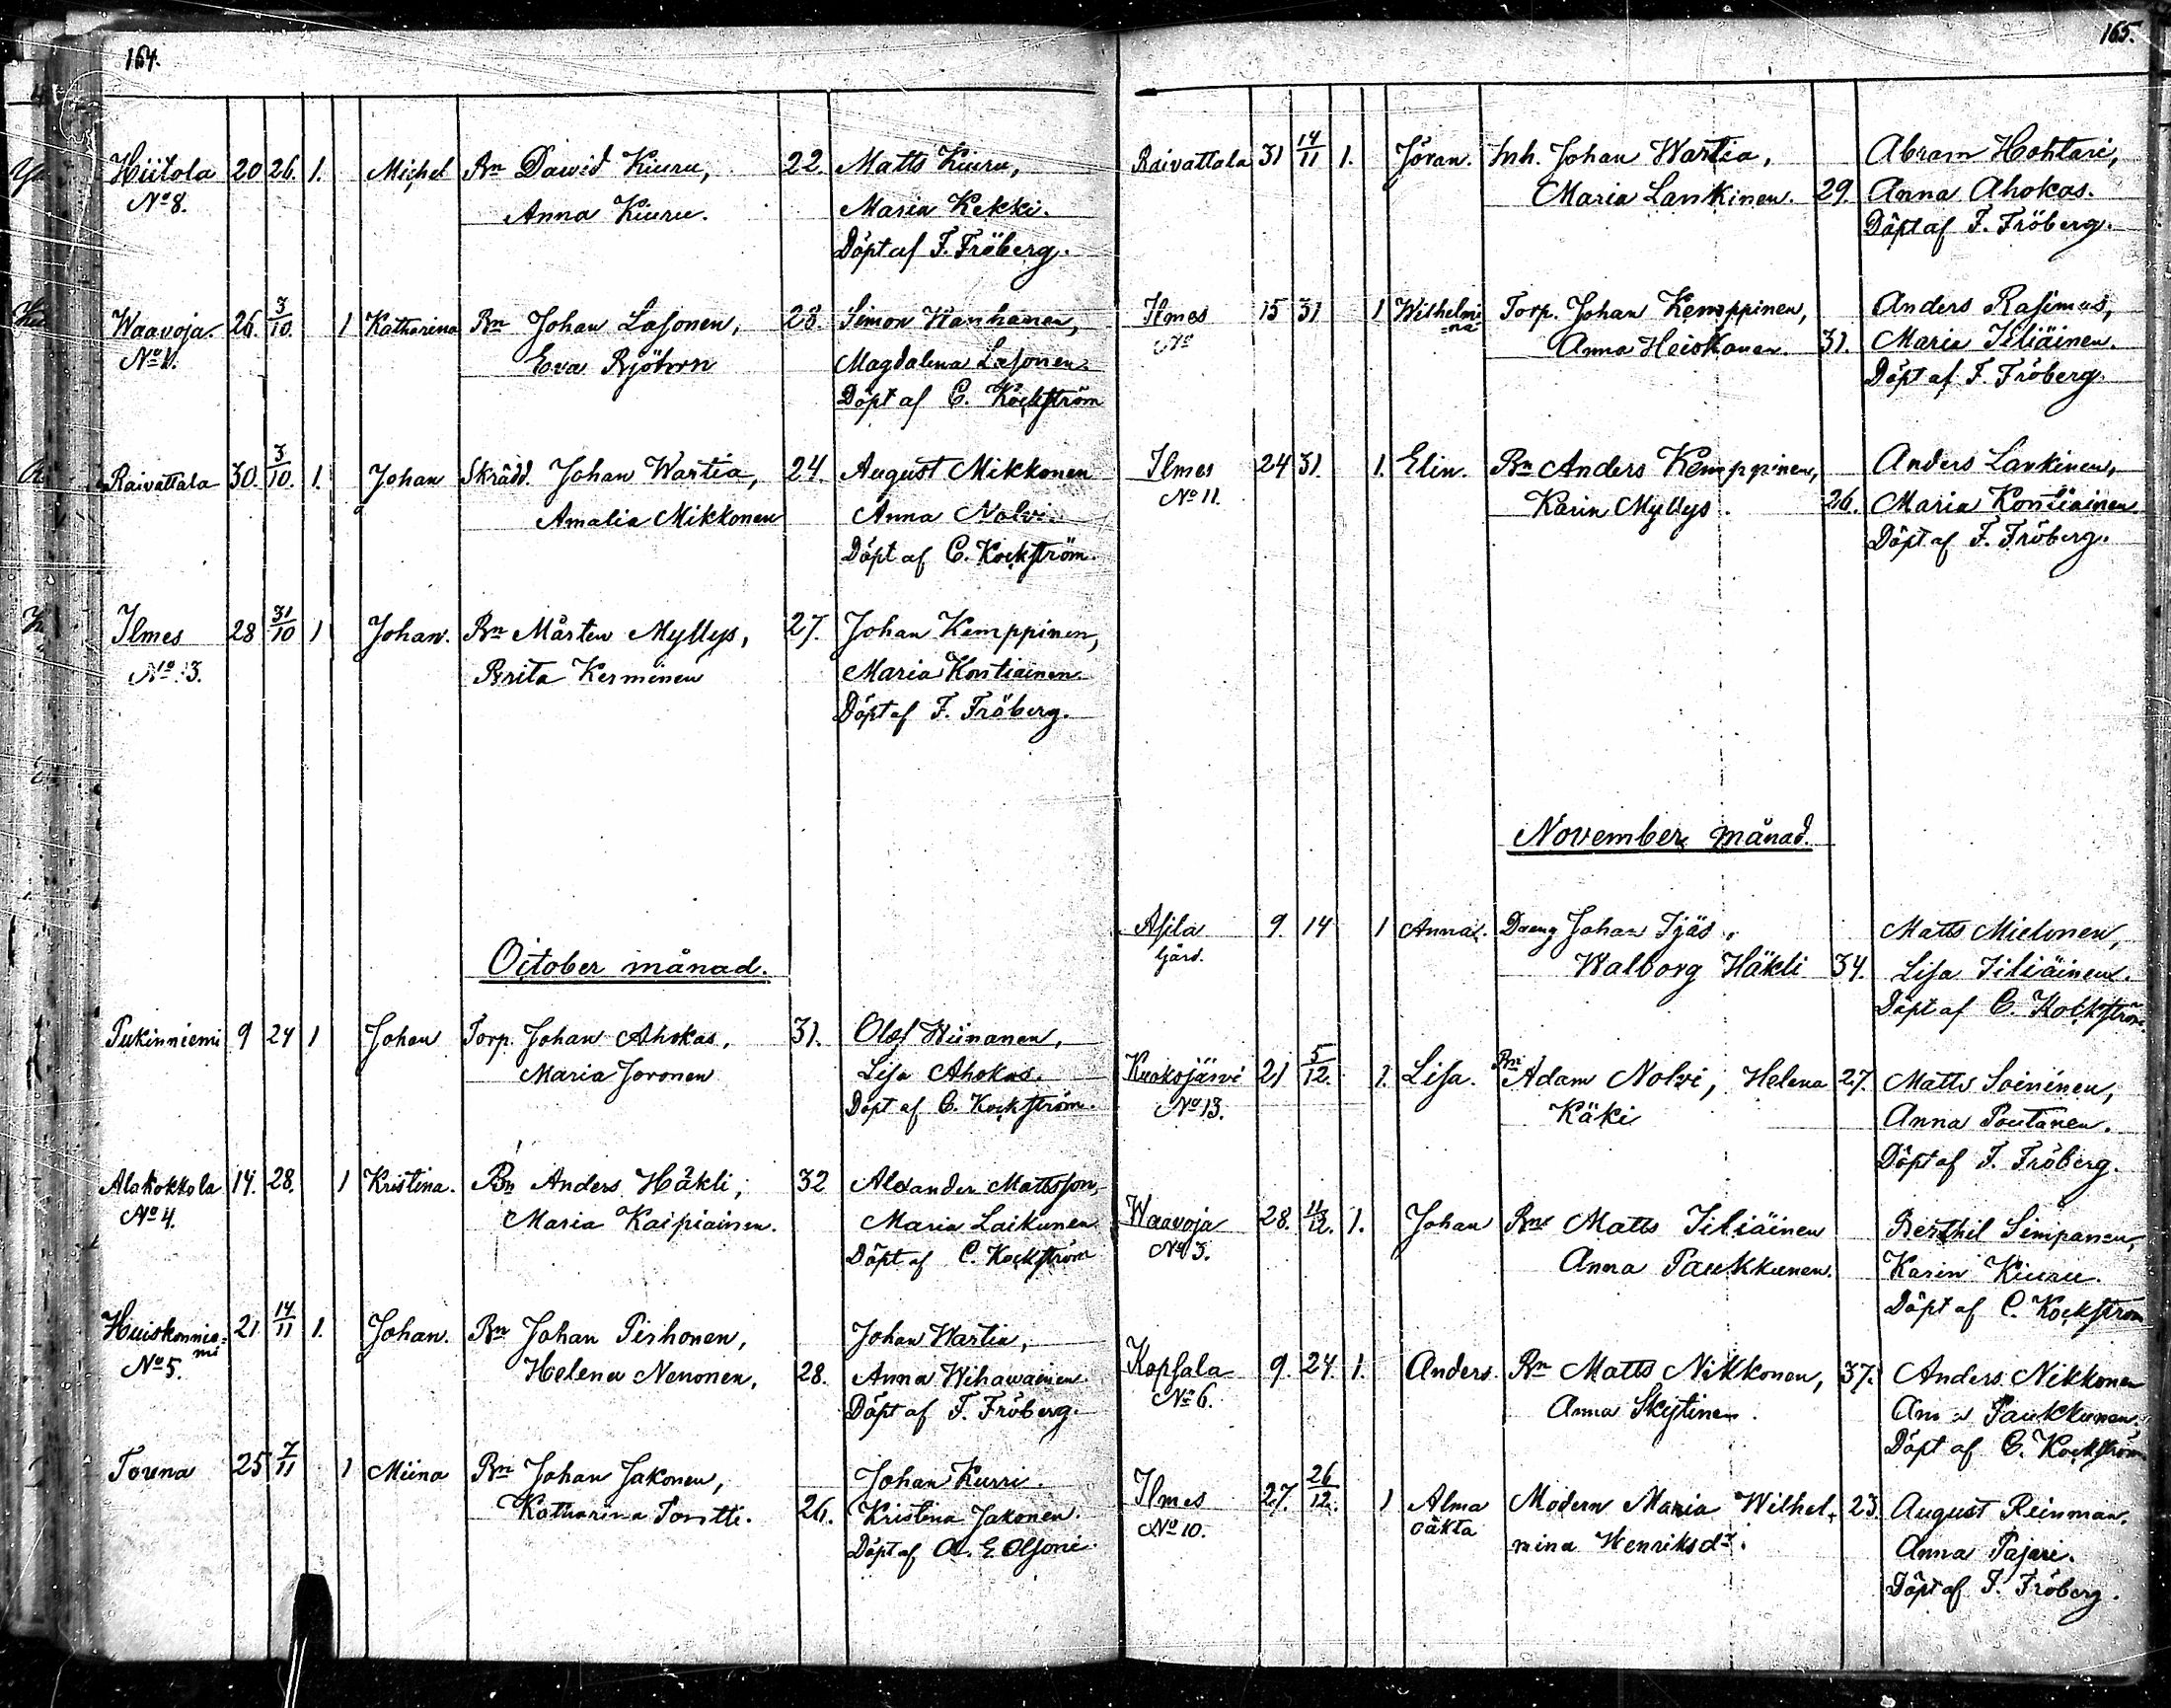 164.
Hiitola 20 26. 1. Michel Bn Dawid Kiuru, 22. Matts Kiuru,
No 8. Anna Kiuru. Maria Kekki.
Döpt af F. Fröberg.
Waavoja. 26. 3/10. 1 Katharina Bn Johan Lasonen, 28. Simon Wanhanen,
No 1. Eva Björn Magdalena Lasonen.
Döpt af C. Kockström
Raivattala 30. 3/10. 1. Johan Skrädd. Johan Wartia, 24. August Mikkonen
Amalia Mikkonen Anna
Döpt af C. Kockström.
Ilmes 28 31/10 1 Johan. Bn Mårten Myllys, 27. Johan Kemppinen,
No 13. Brita Kerminen Maria Kontiainen
Döpt af F. Fröberg.
October månad.
Pukinniemi 9 24 1 Johan Torp. Johan Ahokas, 31. Olof Wiinanen,
Maria Joronen Lisa Ahokas.
Döpt af C. Kockström.
Alakokkola 14. 28. 1 Kristina. Bn Anders Häkli, 32 Alexander Mattsson,
No 4. Maria Kaipiainen. Maria Laikunen
Döpt af C. Kockström
Huiskonnie= 21 14/11 1. Johan. Bn Johan Pirhonen, Johan Wartia,
mi
No 5. Helena Nenonen, 28. Anna Wihawainen.
Döpt af F. Fröberg.
Touna 25 7/11 1 Miina Bn Johan Jakonen, Johan Kurri.
Katharina Tontti. 26. Kristina Jakonen.
Döpt af A. E Olsoni.
165.
Raivattala 31 14/11 1. Jöran. Inh. Johan Wartia, Abram Hohtari,
Maria Lankinen. 29. Anna Ahokas.
Döpt af F. Fröberg.
Ilmes 15 31 1 Wilhelmi Torp. Johan Kemppinen, Anders Rasimus,
=na
No Anna Heiskanen. 31. Maria Iiliäinen.
Döpt af F. Fröberg.
Ilmes 24 31. 1. Elin. Bn Anders Kemppinen, Anders Lankinen,
No 11. Karin Myllys. 26. Maria Kontiainen
Döpt af F. Fröberg.
November månad.
Asila 9. 14 1 Anna. Dreng Johan Tjäs, Matts Mielonen,
Gård. Walborg Häkli 34. Lisa Iiliäinen.
Döpt af C. Kockström.
Kuokojärvi 21 5/12. 1. Lisa. Bn Adam Nolvi, Helena 27. Matts Soininen,
No 13. Käki Anna Poutanen.
Döpt af F. Fröberg.
Waavoja 28. 12. 1. Johan Bn Matts Iiliäinen Berthil Simpanen,
No 3. Anna Paukkunen. Karin Kiuru.
Döpt af C. Kockström
Kopsala 9. 24. 1. Anders. Bn Matts Nikkonen, 37. Anders Nikkonen
No 6. Anna Skytinen. Anna Paukkunen.
Döpt af C. Kockström
Ilmes 27. 26/12. 1 Alma Modern Maria Wilhel- 23. August Reinman.
No 10. oäkta mina Henriksdr. Anna Pajari.
Döpt af F. Fröberg.